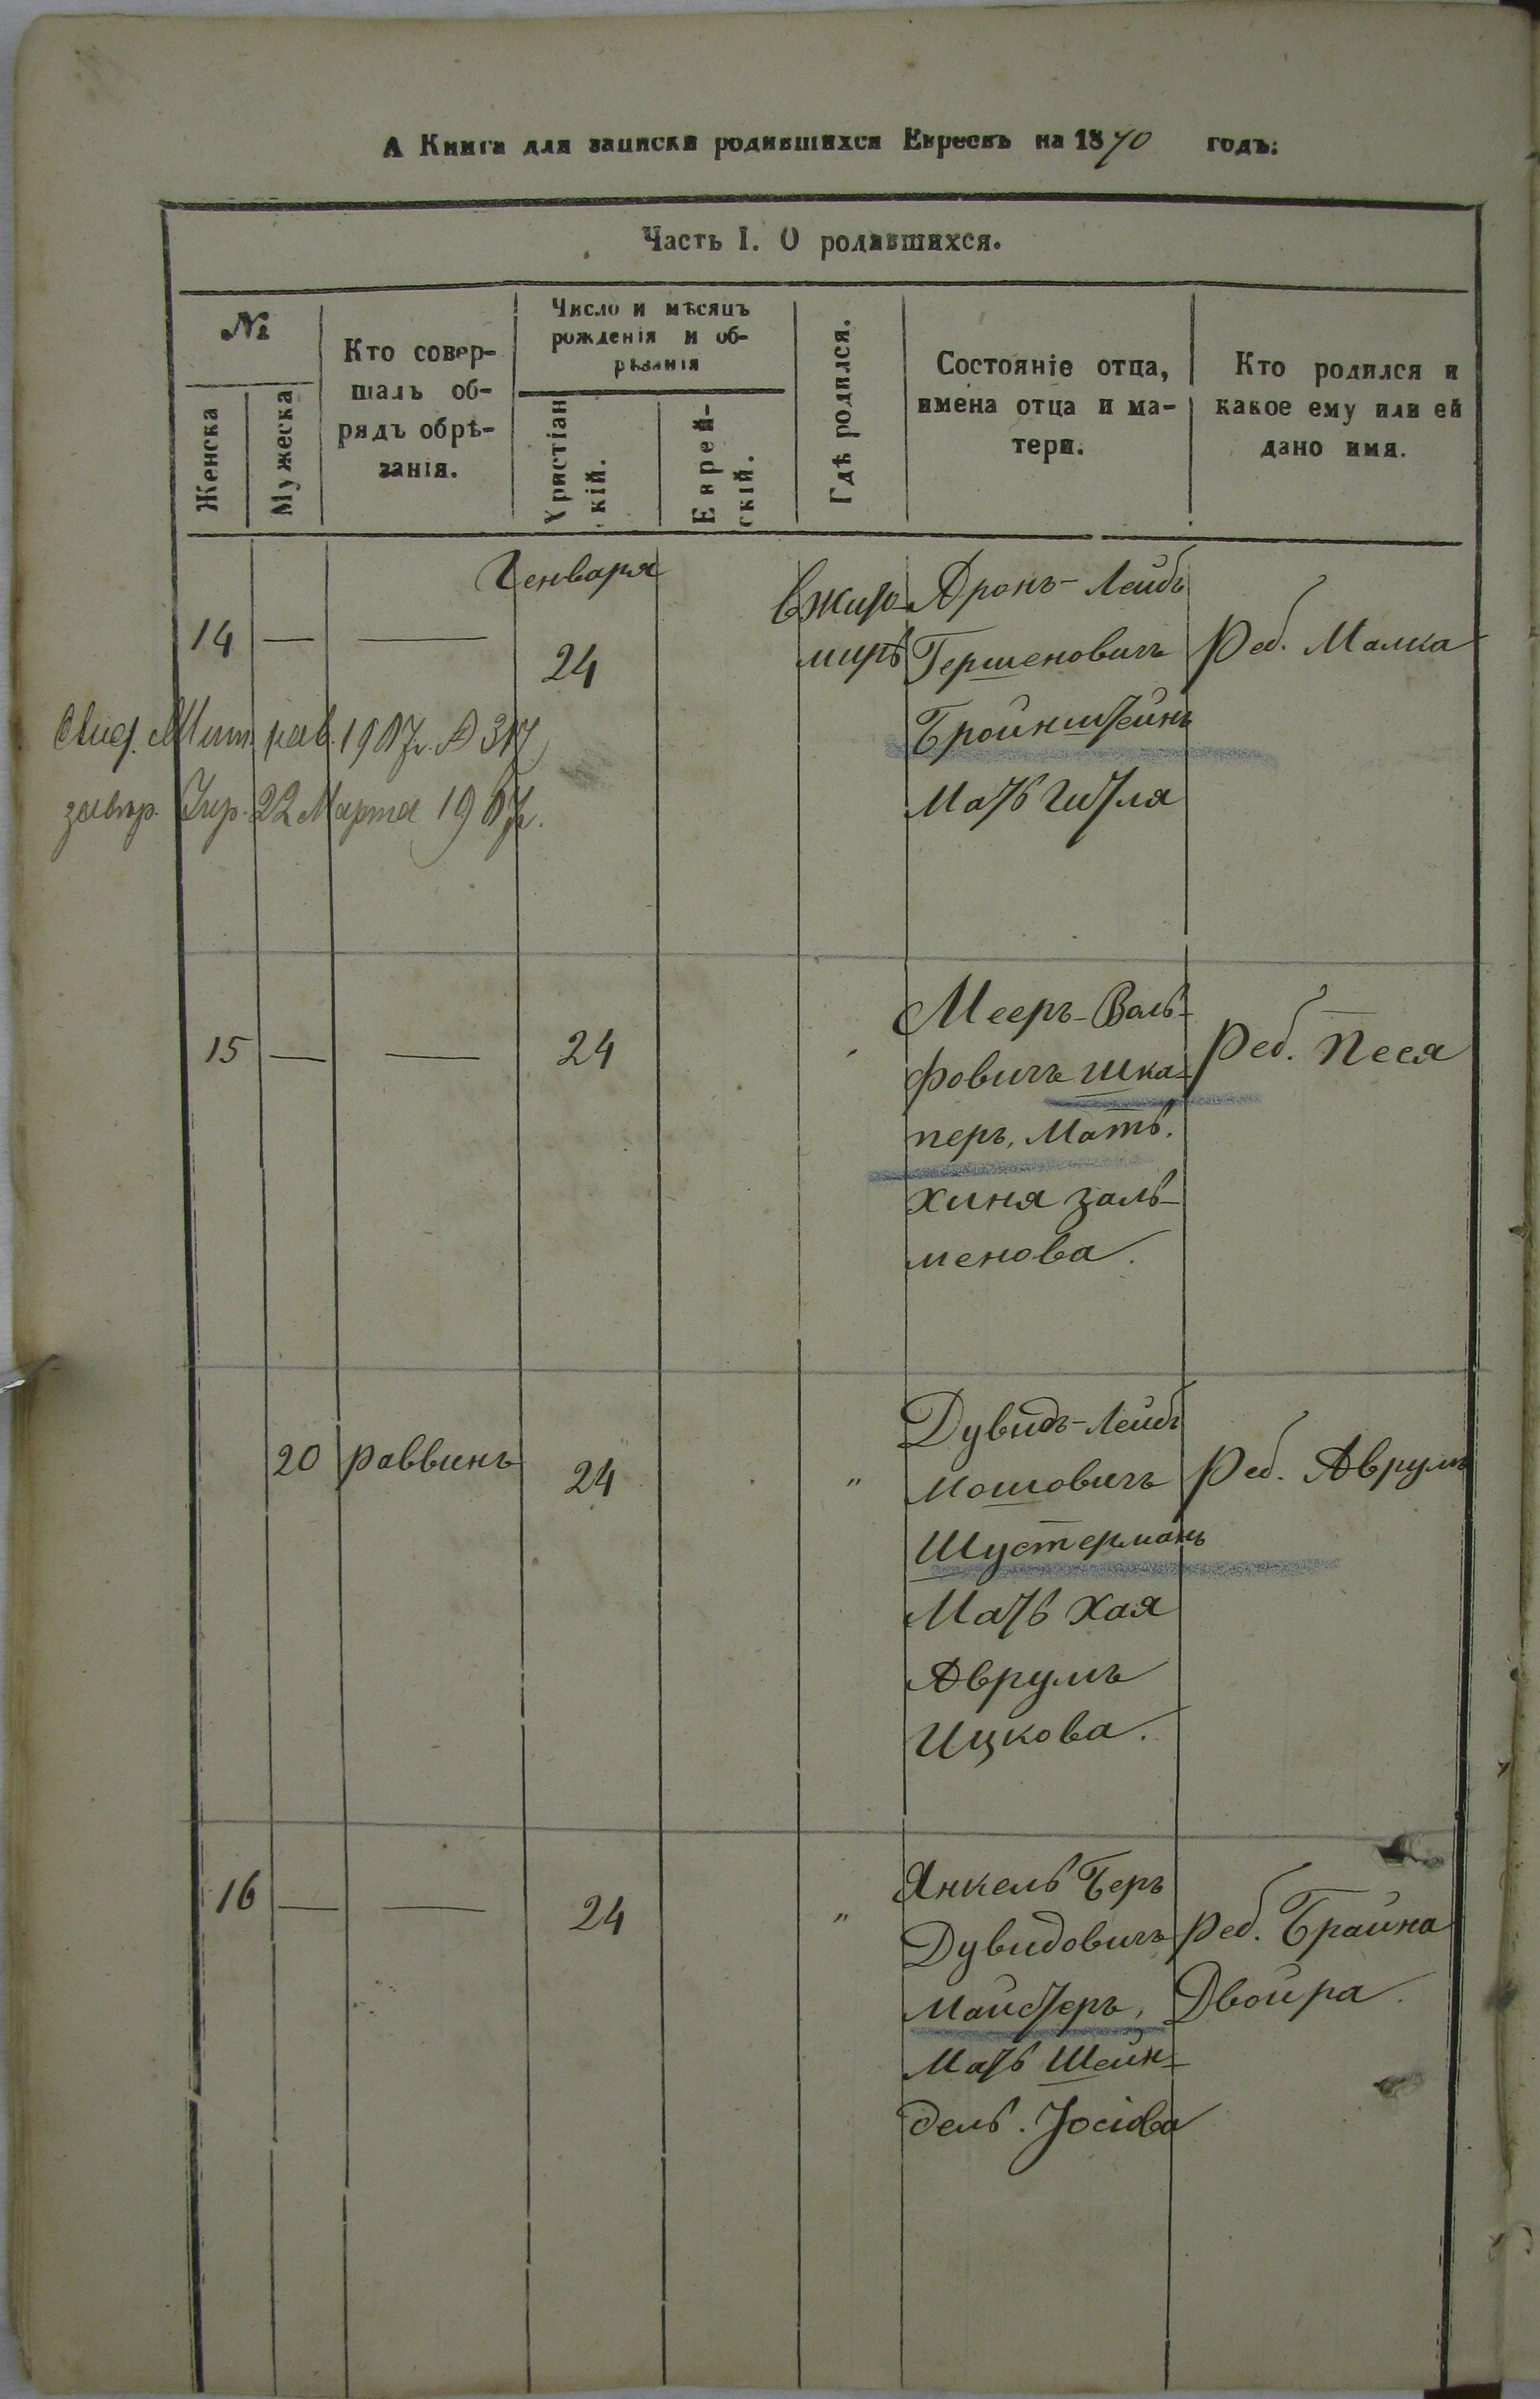 А Книга для записки родившихся Евреевъ на 1870 годъ:
Часть I. О родившихся.
№
Женска
Мужеска
Кто совер-
шалъ об-
рядъ обрѣ-
занія.
Число и мѣсяцъ
рожденія и об-
рѣзанія
Христіан
скій.
Еврей-
скій.
Гдѣ родился.
Состояніе отца,
имена отца и ма-
тери.
Кто родился и
какое ему или ей
дано имя.
Генваря
14 — — 24
вжито-
мирѣ
Аронъ-Лейбъ
Гершеновичъ
Бронштейнъ
Мать Гитля
Реб. Малка
1907г. № 317
22 Марта 1907г.
15 — — 24 "
Мееръ-Воль-
фовичъ Шка-
перъ, Мать.
Хиня Заль-
менова.
Реб. Песя
20 раввинъ 24 "
Дувидъ-Лейбъ
Мошовичъ
Шустерманъ
Мать Хая
Аврумъ
Ицкова.
Реб. Аврумъ
16 — — 24 "
Янкель Беръ
Дувидовичъ
Майстеръ,
Мать Шейн-
дель. Іосіова
Реб. Брайна
Двойра.